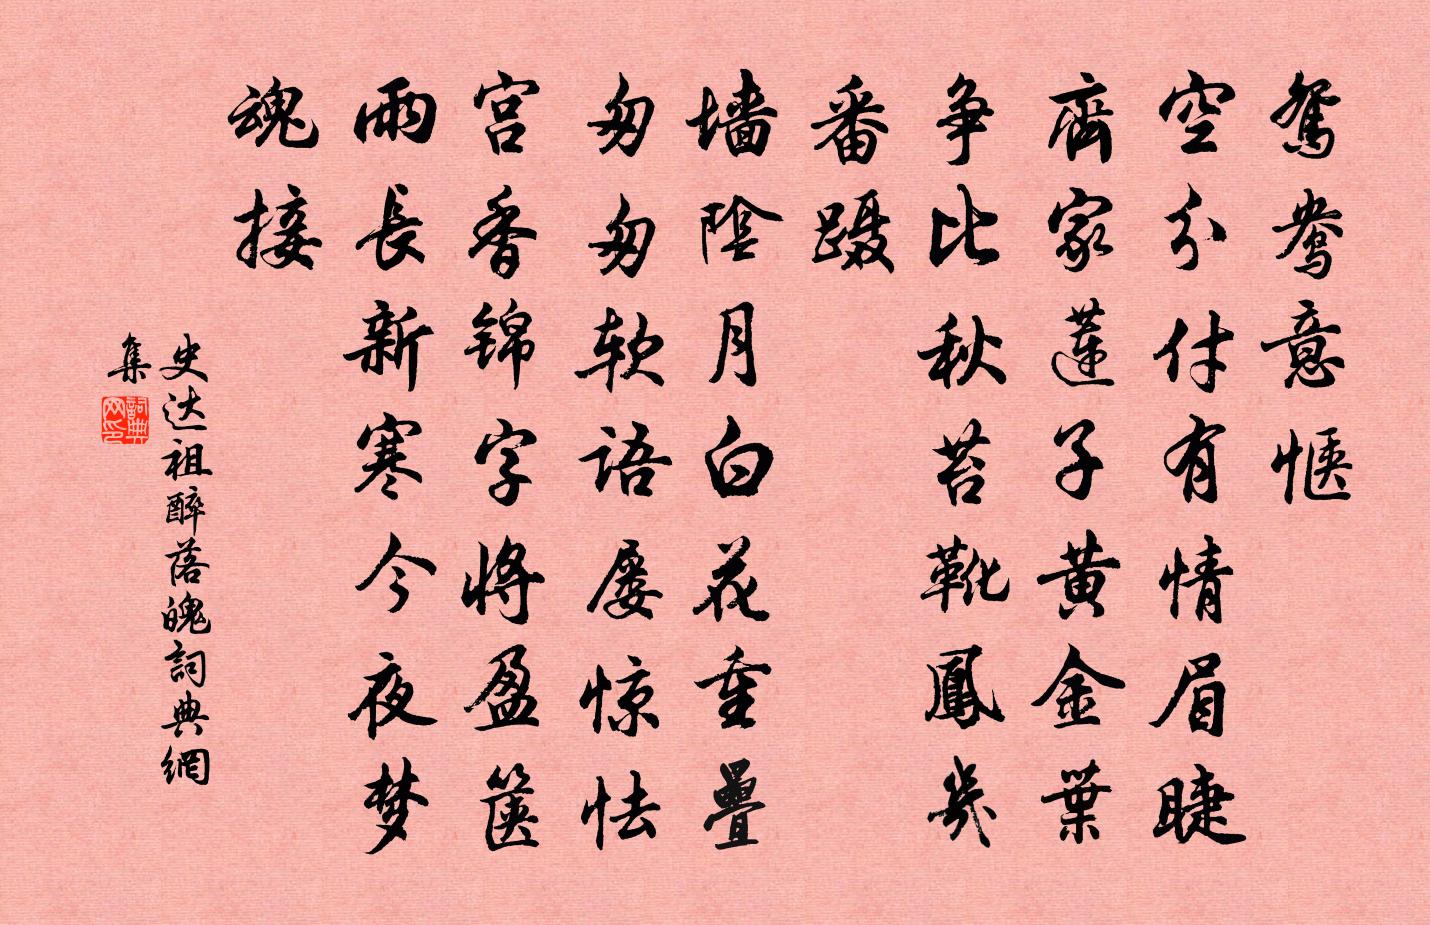 鸳鸯意惬
空分付有情眉睫
齊家蓮子黄金葉
争比秋苔靴鳳幾
番蹑
墙陰月白花重疊
匆匆软语屡惊怯
宫香锦字将盈箧
雨長新寒今夜梦
魂接
史达祖醉落魄詞典網
集
詞典网印